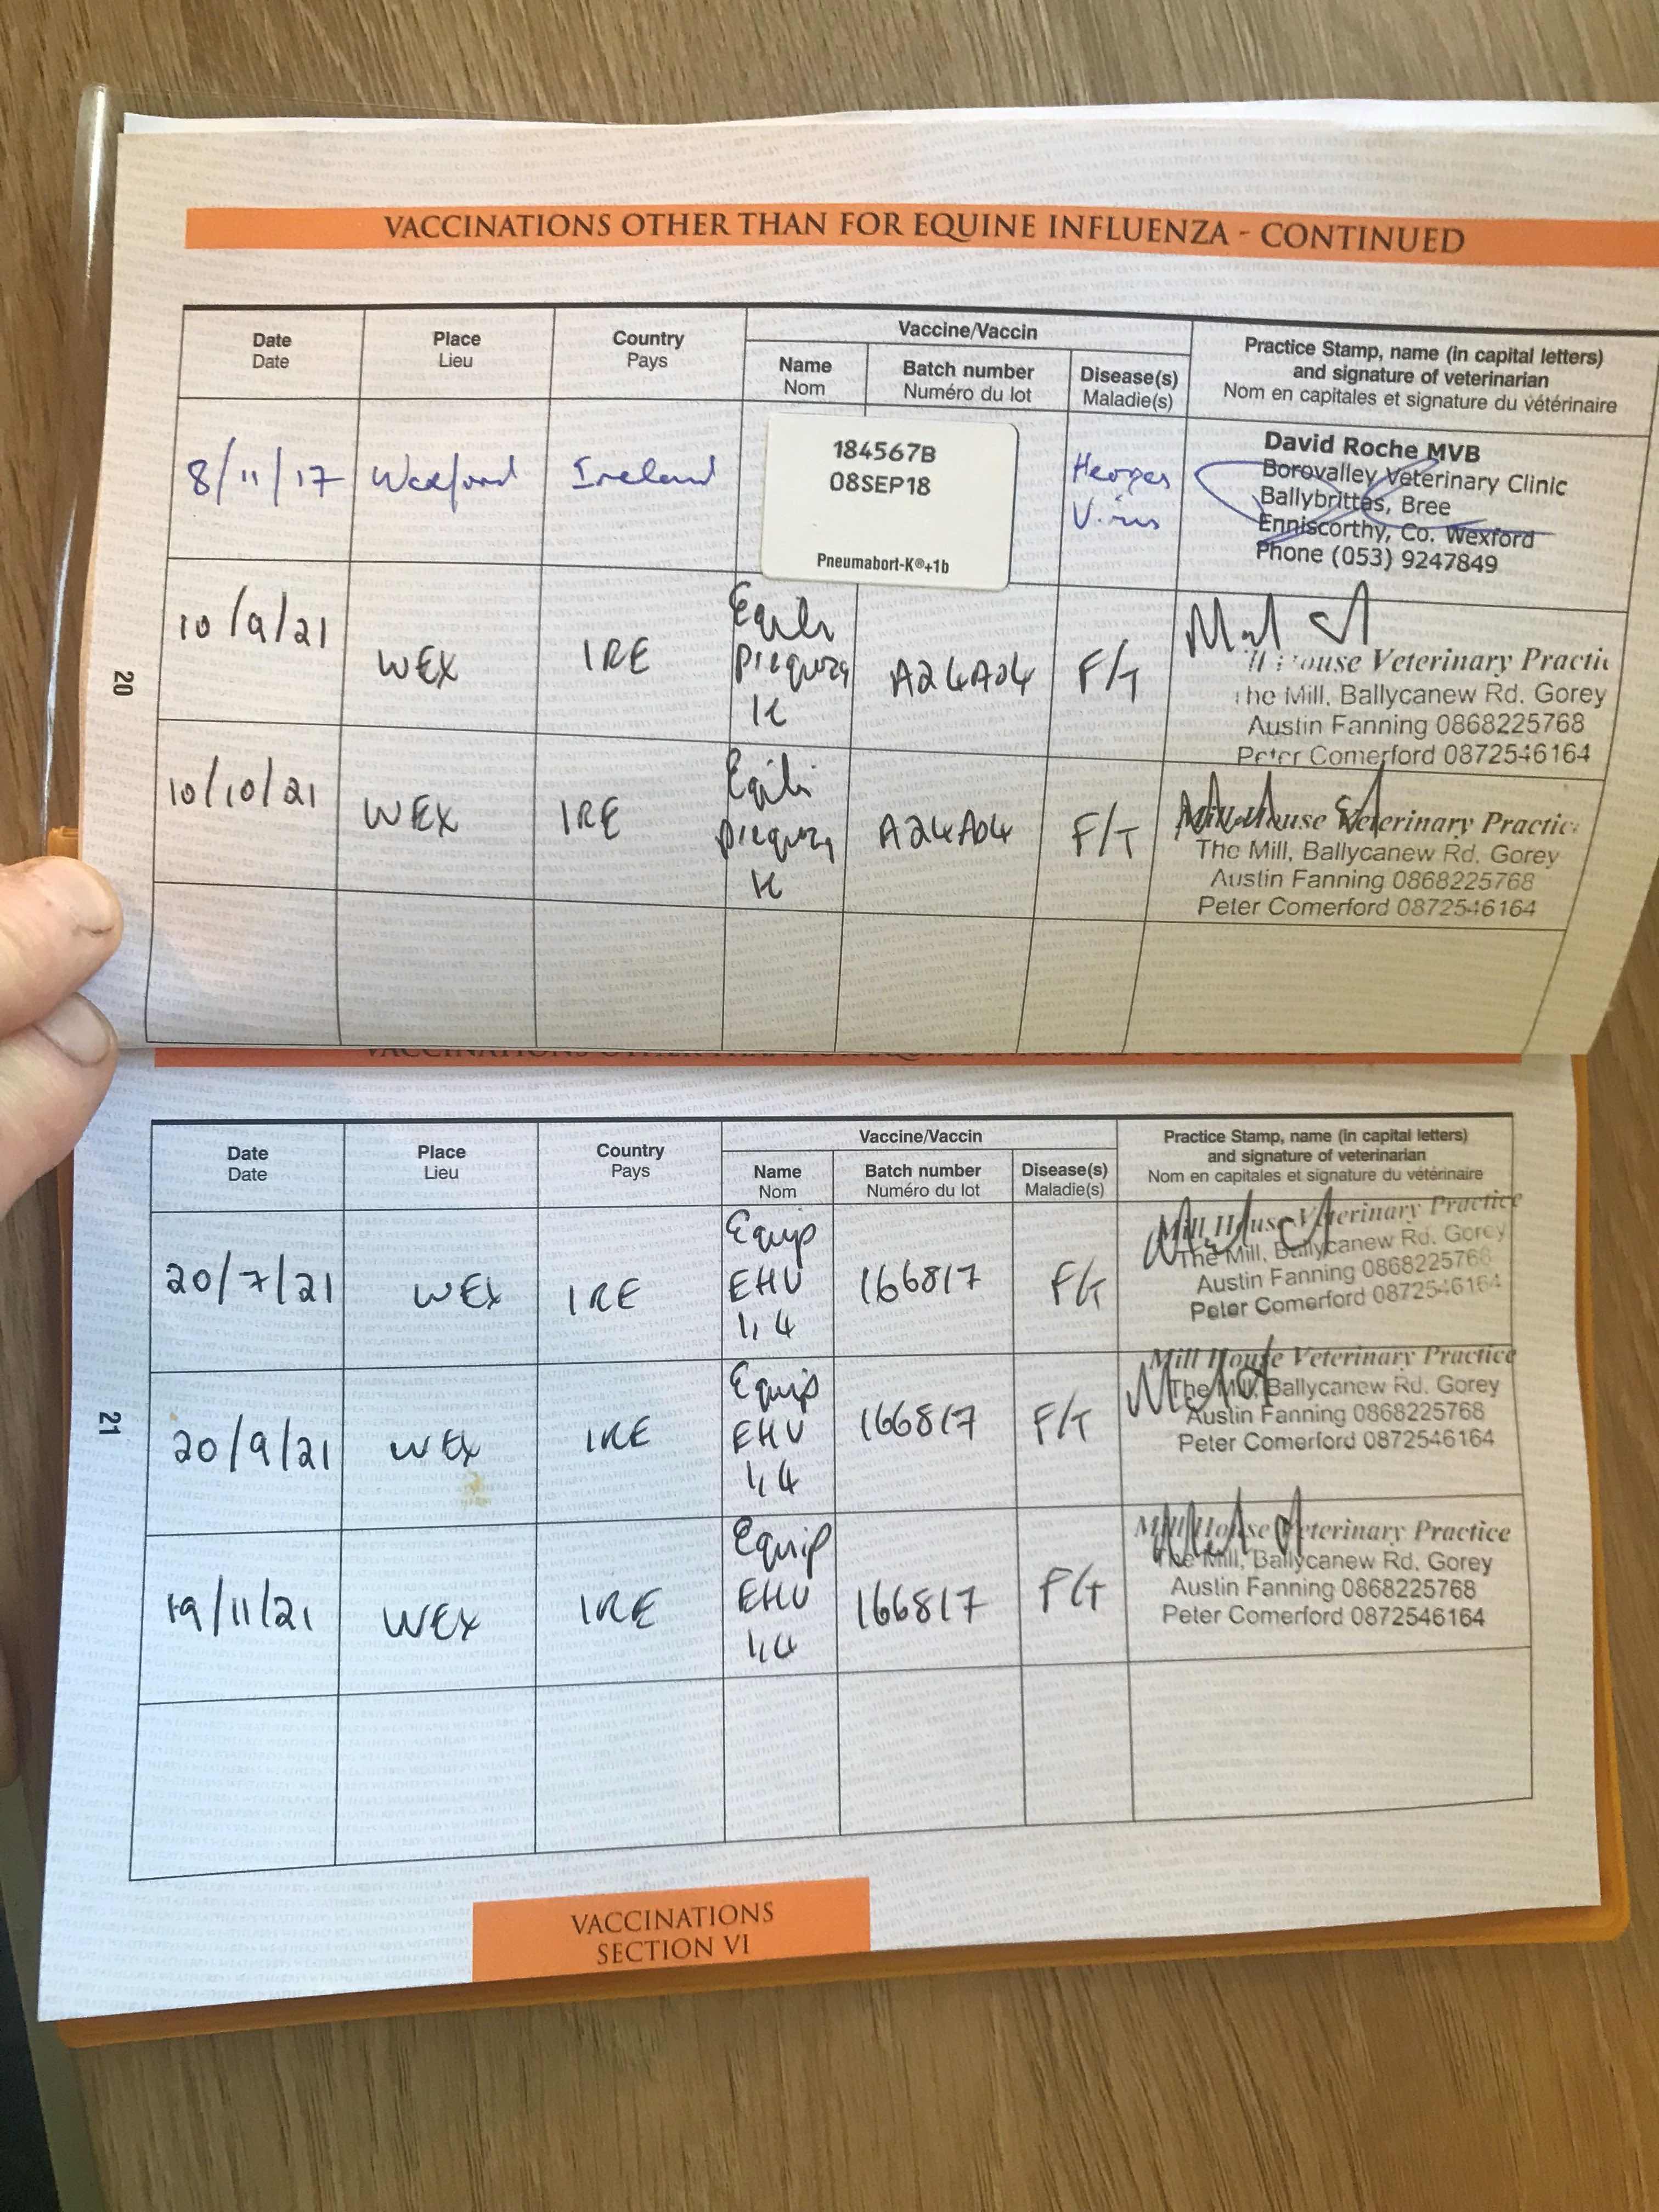 VACCINATIONS OTHER THAN FOR EQUINE INFLUENZA - CONTINUED
Date
Date
Place
Lieu
Country
Pays
Vaccine/Vaccin
Name
Nom
Batch number
Numéro du lot
Disease(s)
Maladie(s)
Practice Stamp, name (in capital letters)
and signature of veterinarian
Nom en capitales et signature du vétérinaire
8/11/17
Wexford
Ireland
184567B
08SEP18
Pneumabort-K®+1b
Virus
David Roche MVB
Borovalley Veterinary Clinic
Ballybrittas, Bree
Enniscorthy, Co. Wexford
Phone (053) 9247849
10/9/21
WEX
IRE
K
A24A04
F/T
House Veterinary Practic
The Mill, Ballycanew Rd. Gorey
Austin Fanning 0868225768
Peter Comerford 0872546164
10/10/21
WEX
IRE
K
A24A04
F/T
Mill House Veterinary Practic
The Mill, Ballycanew Rd. Gorey
Austin Fanning 0868225768
Peter Comerford 0872546164
20
Date
Date
Place
Lieu
Country
Pays
Vaccine/Vaccin
Name
Nom
Batch number
Numéro du lot
Disease(s)
Maladie(s)
Practice Stamp, name (in capital letters)
and signature of veterinarian
Nom en capitales et signature du vétérinaire
20/7/21
WEX
IRE
Equip
EHV
1,4
166817
F/T
Mill House Veterinary Practice
The Mill, Ballycanew Rd. Gorey
Austin Fanning 0868225768
Peter Comerford 0872546164
20/9/21
WEX
IRE
Equip
EHV
1,4
166817
F/T
Mill House Veterinary Practice
The Mill, Ballycanew Rd. Gorey
Austin Fanning 0868225768
Peter Comerford 0872546164
19/11/21
WEX
IRE
Equip
EHV
1,4
166817
F/T
Mill House Veterinary Practice
The Mill, Ballycanew Rd. Gorey
Austin Fanning 0868225768
Peter Comerford 0872546164
21
VACCINATIONS
SECTION VI